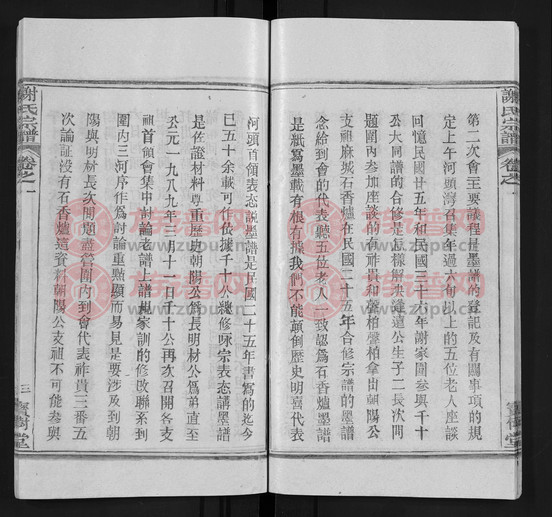 謝氏宗譜
卷之一
第二次會主要議程是墨譜的登記及有關事項的規
定上午河頭灣召集年過六旬以上的五位老人座談
回憶民國廿五年和民國三十六年謝家圍參與千十
公大同譜的合修是怎樣解決鴻遠公生子二長次問
題圍內參加座談的有祚貴和馨柏馨柏拿出朝陽公
支祖麻城石香爐在民國二十五年合修宗譜的墨譜
念給到會的代表聽五位老人一致認為石香爐墨譜
是紙寫墨載有根有據我們不能顛倒歷史明喜代表
寶樹堂
河頭首領表态説墨譜是民國二十五年書寫的迄今
已五十余載可以依據千十公總修咏宗表态講墨譜
是佐證材料尊重歷史朝陽公為長明材公為弟直至
公元一九八九年三月十二日千十公再次召開各支
祖首領會集中討論老譜上譜規家訓的修改聯系到
圍内三河序作為討論重點顯而易見是要涉及到朝
陽與明材長次問題盡管圍内到會代表祚貴三番五
次論証没有石香爐這資料朝陽公支祖不可能參與
謝氏宗譜
卷之一
三
寶樹堂
族譜网
www.zupu.cn
族譜网
www.zupu.cn